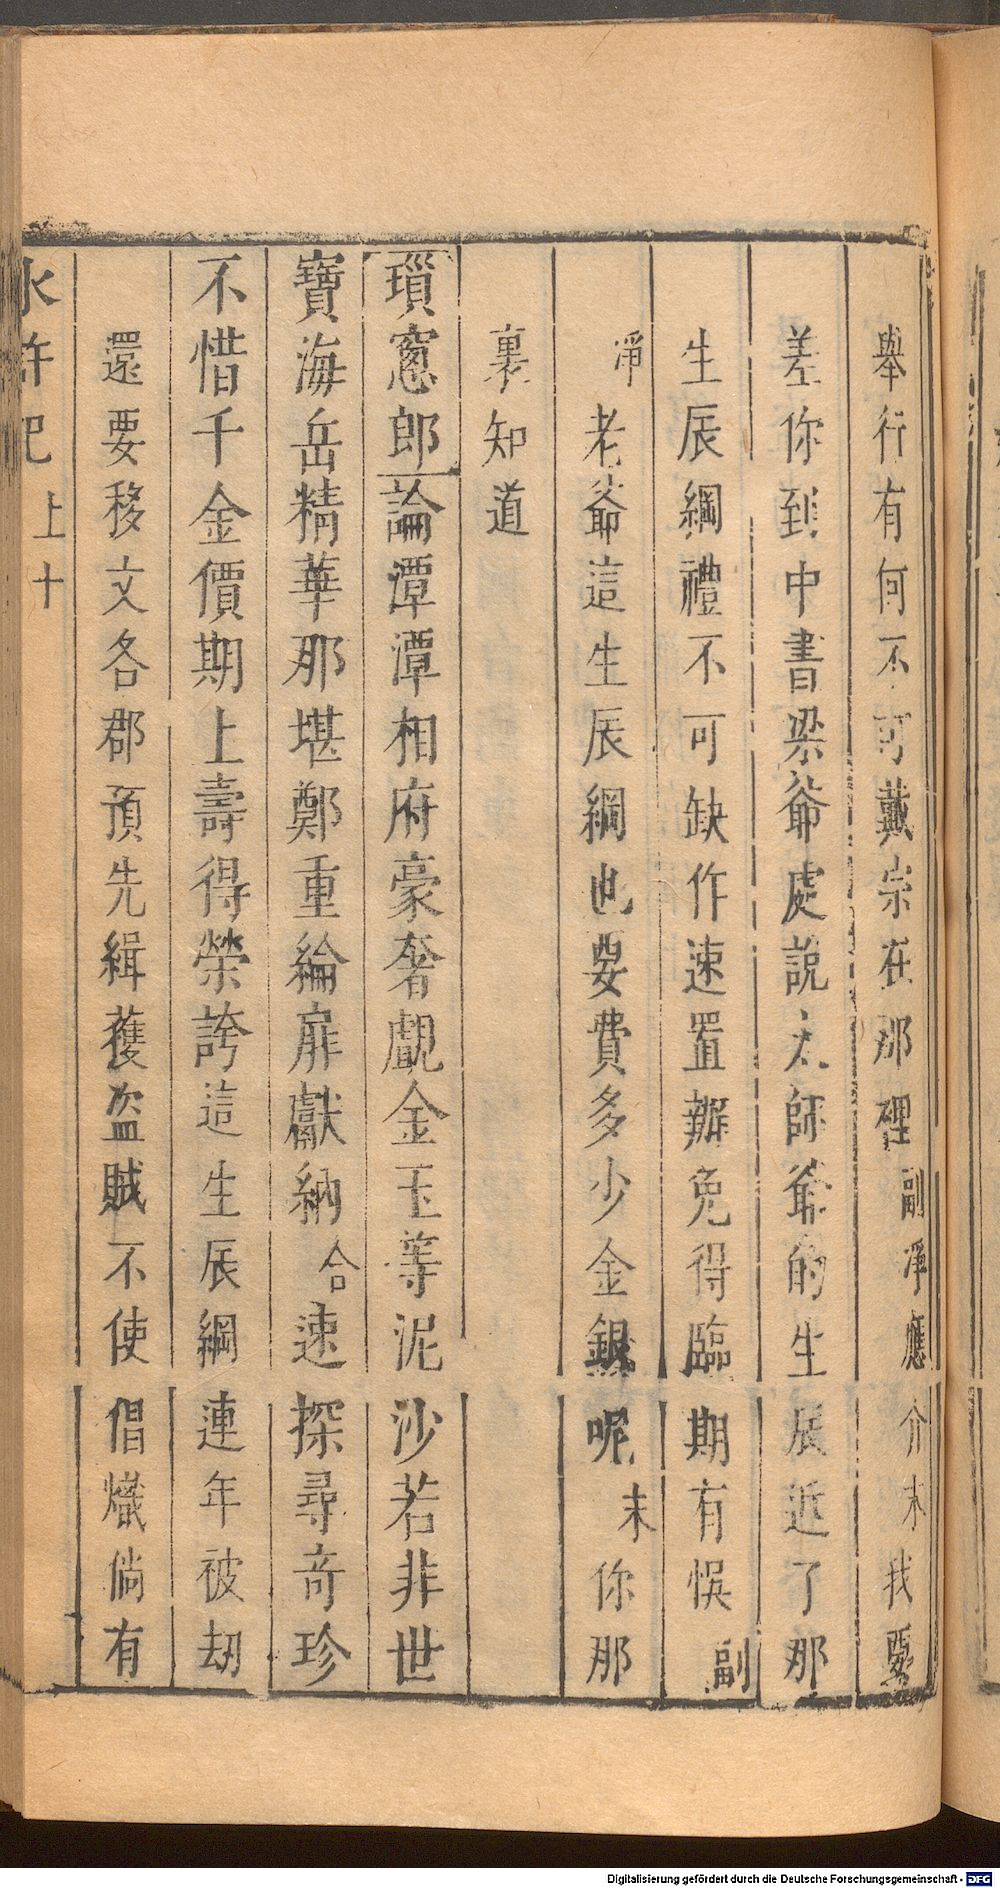 舉行有何不可戴宗在那裡副淨應介末我要
差你到中書梁爺處說太師爺的生辰近了那
生辰綱禮不可缺作速置辦免得臨期有悞副
淨老爺這生辰綱也要費多少金銀呢末你那
裏知道
瑣窻郎論潭潭相府豪奢覷金玉等泥沙若非世
寶海岳精華那堪鄭重綸扉獻納合速探尋奇珍
不惜千金價期上壽得榮誇這生辰綱連年被刼
還要移文各郡預先緝獲盗賊不使倡熾倘有
水滸記 上 十
Digitalisierung gefördert durch die Deutsche Forschungsgemeinschaft - DFG